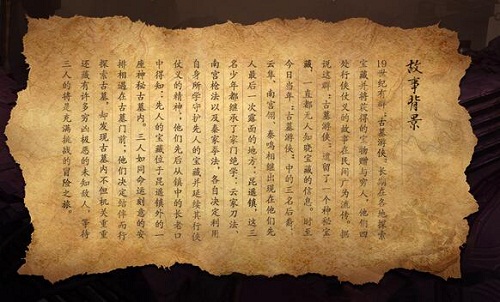 故事背景
19世纪有群“古墓游侠”长期在各地探索
宝藏并将获得的宝物赠与穷人。他们四
处行侠仗义的故事在民间广为流传。据
说这群“古墓游侠”遗留了一个神秘宝
藏，一直都无人知晓宝藏的信息。时至
今日当年“古墓游侠”中的三名后裔：
云隼、南宫翎、秦鸣相继出现在他们先
人最后一次露面的地方：昆遗镇，这三
名少年都继承了家门绝学：云家刀法、
南宫枪法以及秦家拳法。各自决定利用
自身所学守护先人的宝藏并延续其行侠
仗义的精神，他们先后从镇中的长老口
中得知：先人的宝藏位于昆遗镇外的一
座神秘古墓内。三人如同命运刻意的安
排相遇在古墓门前，他们决定结伴而行
探索古墓。却发现古墓内不但机关重重
还藏有许多穷凶极恶的未知敌人，等待
三人的将是充满挑战的冒险之旅。